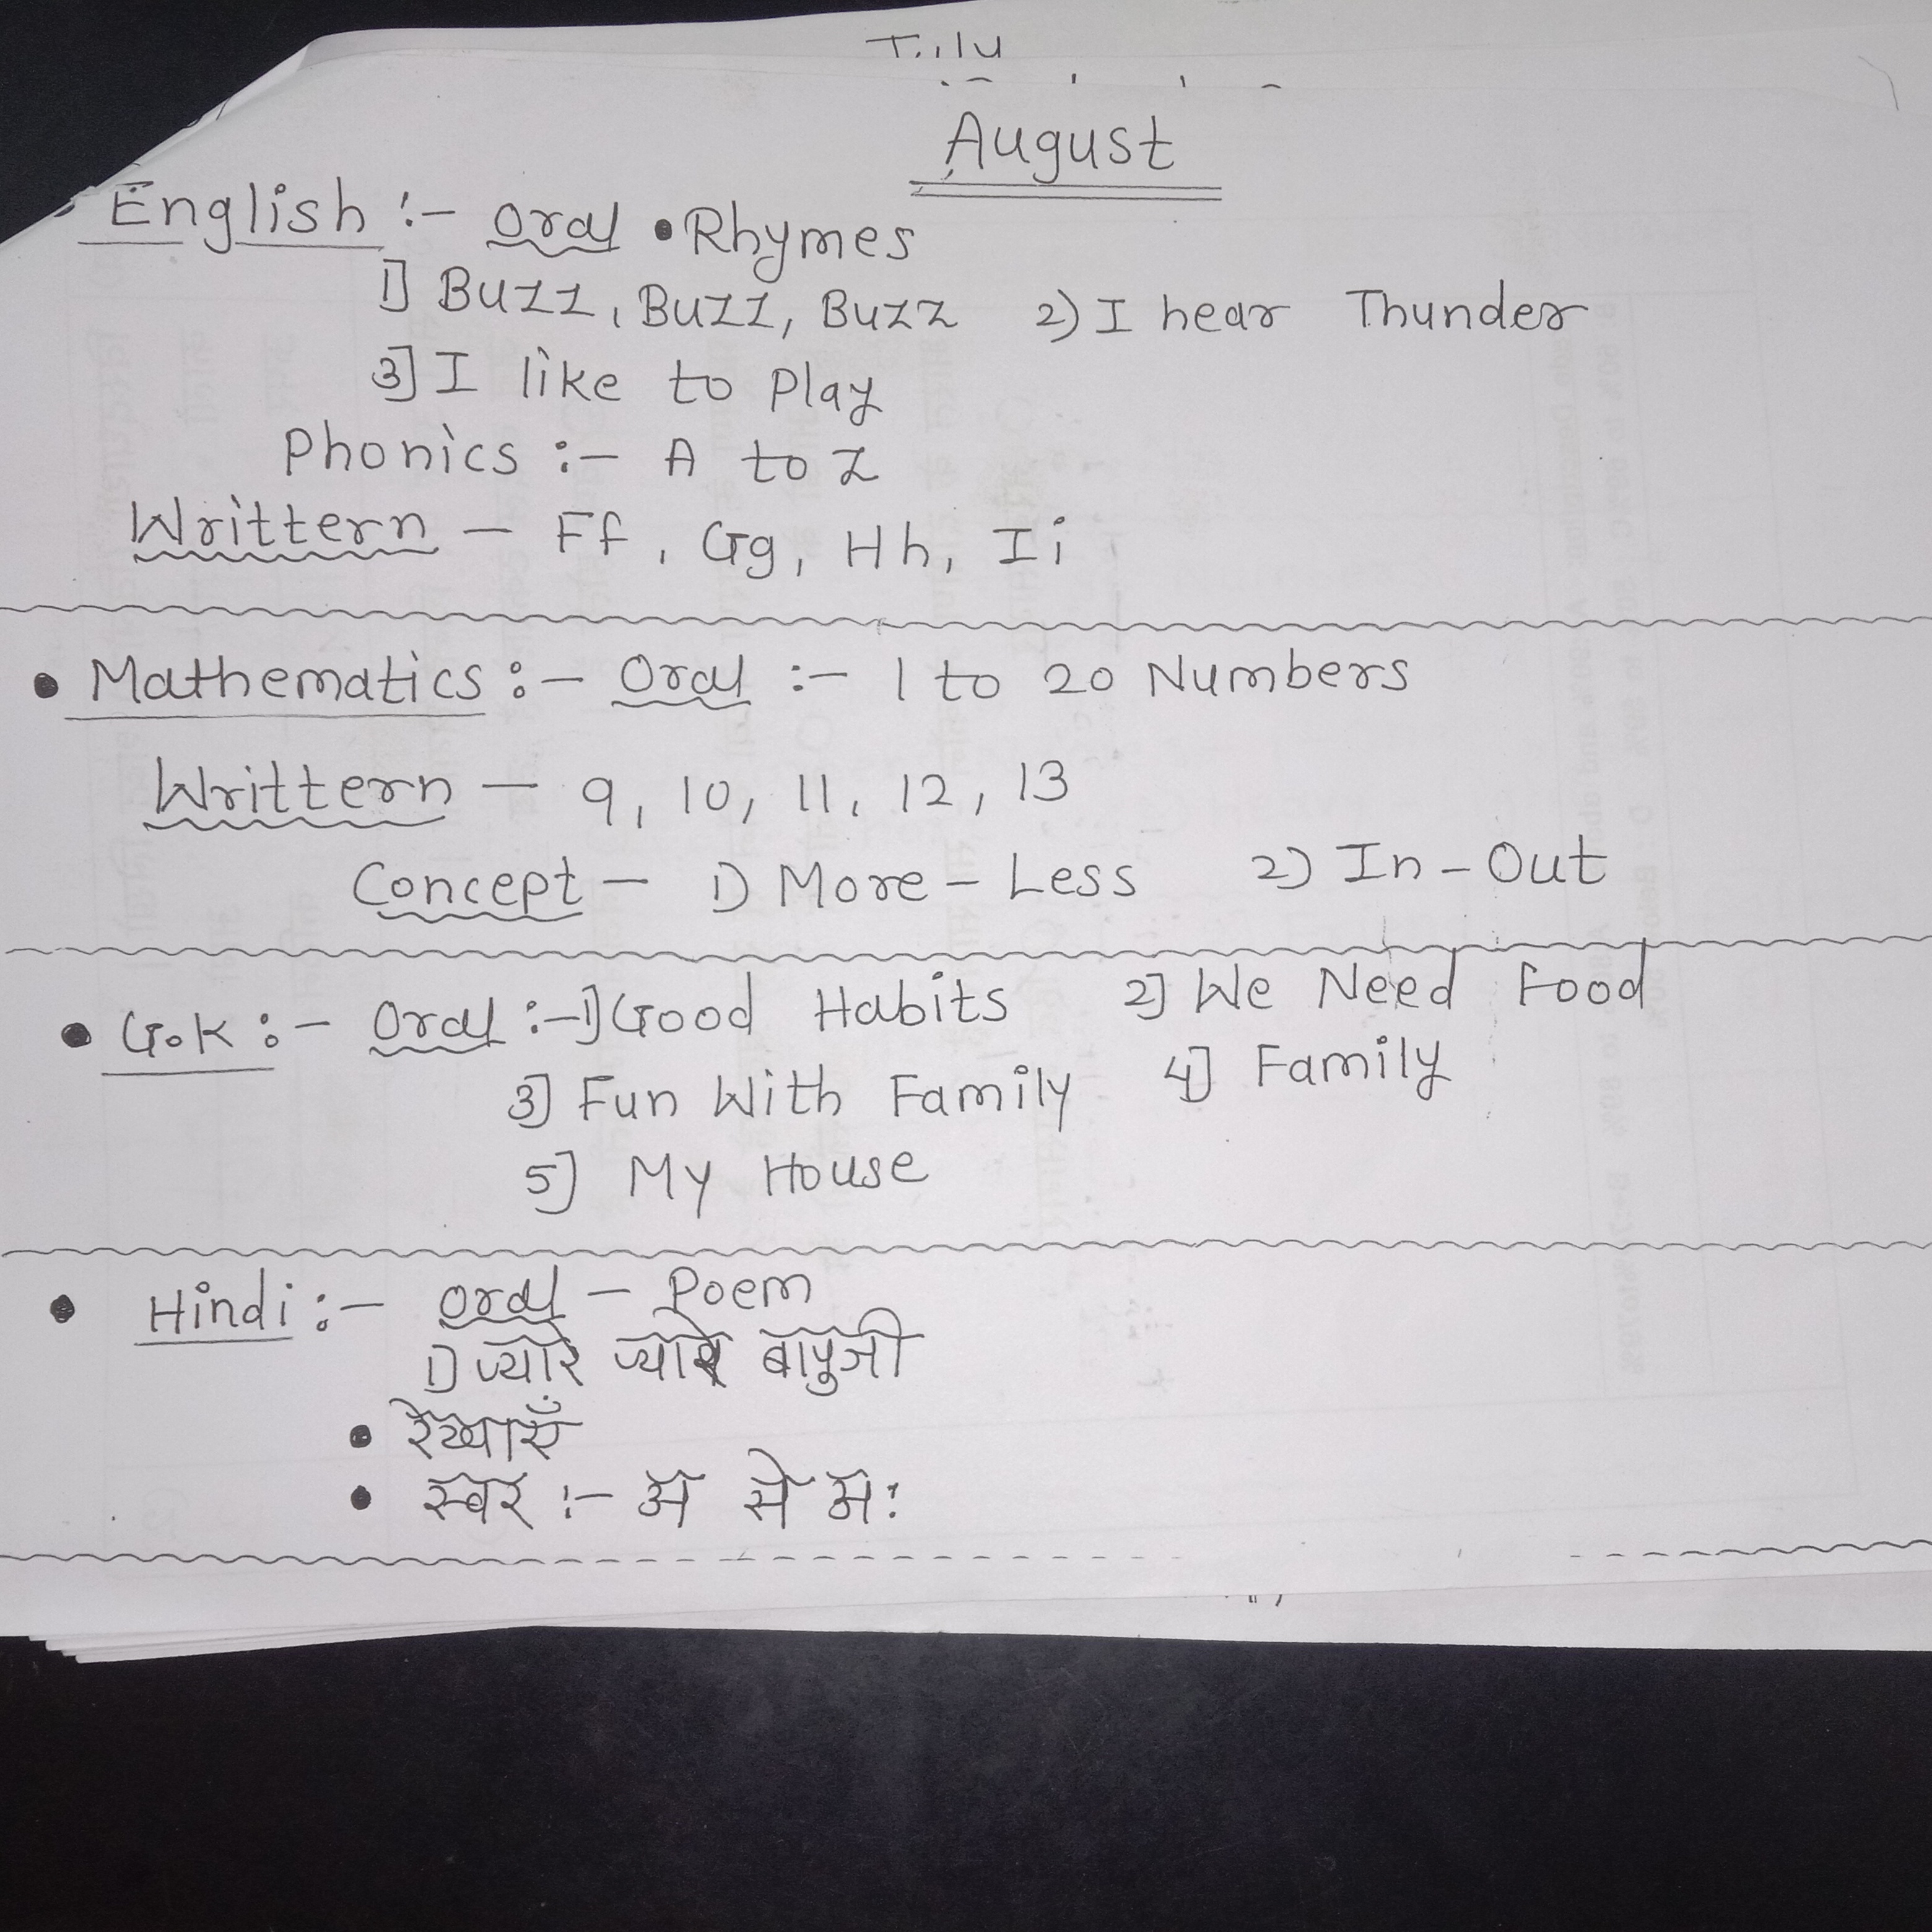 August
• English :- Oral • Rhymes
1] Buzz, Buzz, Buzz 2) I hear Thunder
3] I like to Play
Phonics :- A to Z
Writtern - Ff, Gg, Hh, Ii
• Mathematics :- Oral :- 1 to 20 Numbers
Writtern - 9, 10, 11, 12, 13
Concept - 1) More - Less 2) In - Out
• G.K :- Oral :- 1] Good Habits 2] We Need Food
3] Fun With Family 4] Family
5] My House
• Hindi :- Oral - Poem
1) प्यारे प्यारे बापुजी
• रेखाएँ
• स्वर :- अ से अः